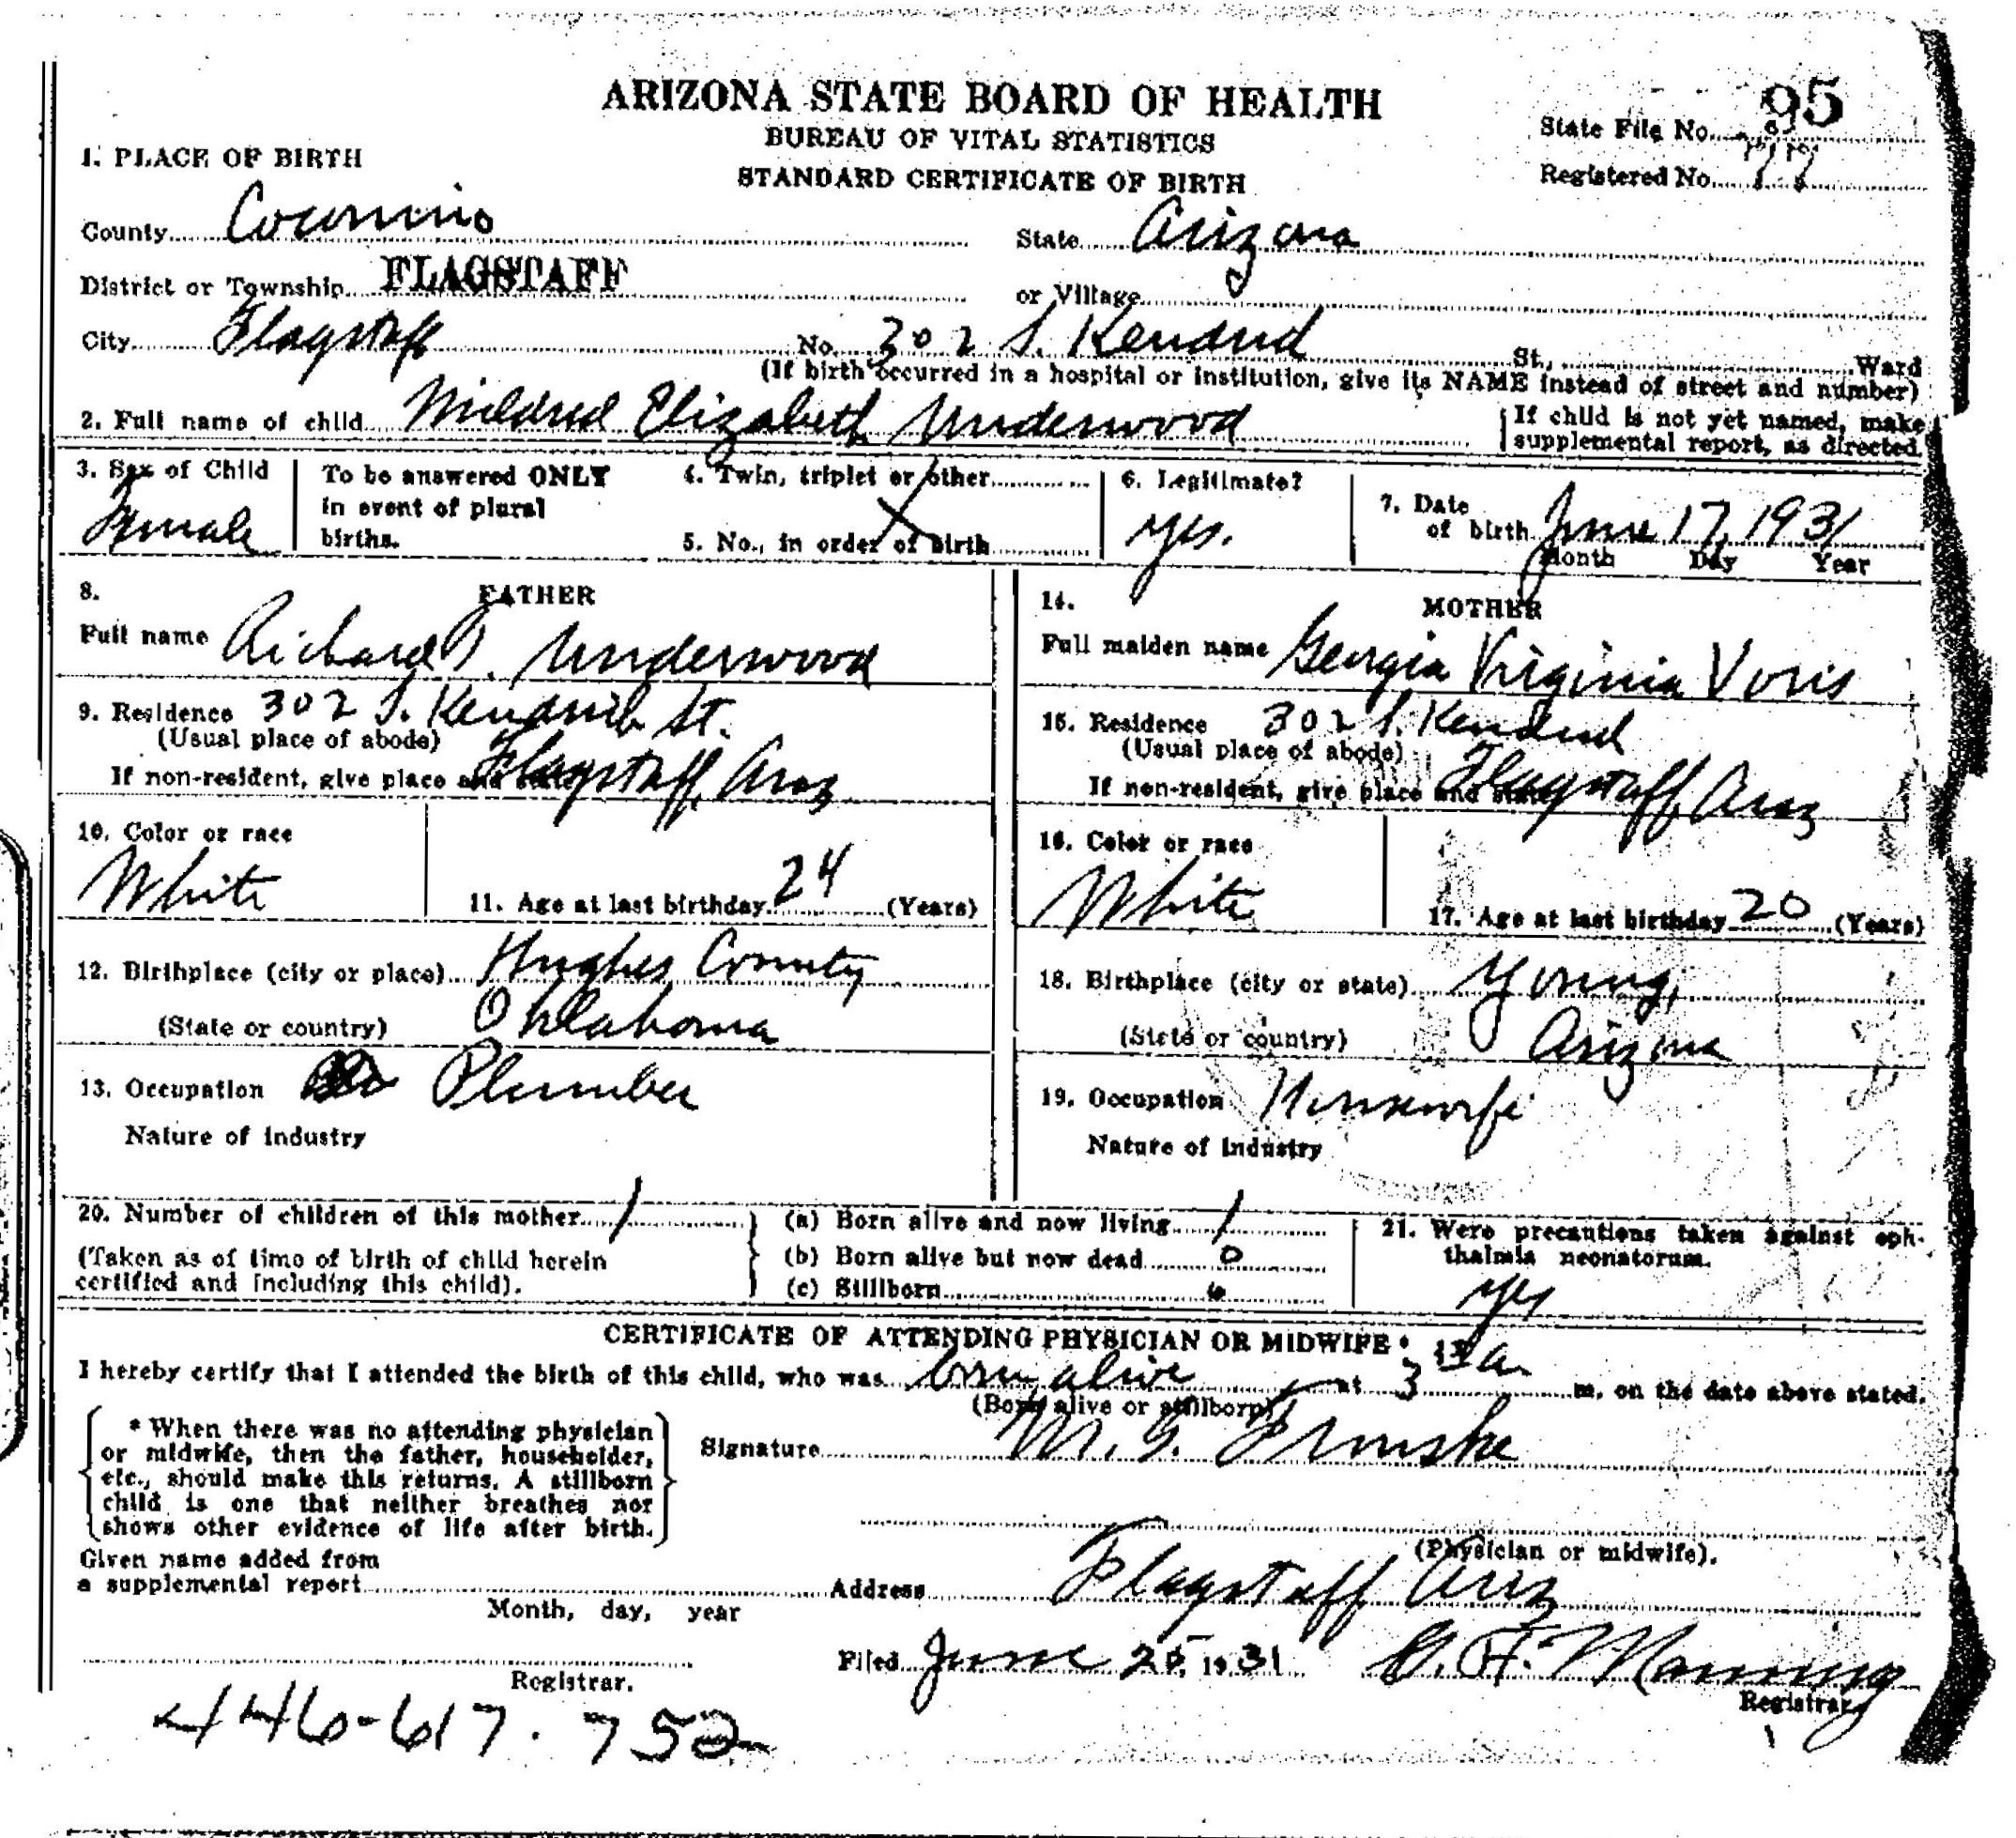 ARIZONA STATE BOARD OF HEALTH
BUREAU OF VITAL STATISTICS
STANDARD CERTIFICATE OF BIRTH
State File No. 95
Registered No. 77
1. PLACE OF BIRTH
County Coconino State Arizona
District or Township FLAGSTAFF or Village
City Flagstaff No. 302 S. Kendrick St, Ward
(If birth occurred in a hospital or institution, give its NAME instead of street and number)
2. Full name of child Mildred Elizabeth Underwood
If child is not yet named, make
supplemental report, as directed.
3. Sex of Child
Female
To be answered ONLY
in event of plural
births.
4. Twin, triplet or other
5. No., in order of birth
6. Legitimate?
yes.
7. Date
of birth June 17, 1931
Month Day Year
8. FATHER
Full name Richard T. Underwood
9. Residence 302 S. Kendrick St.
(Usual place of abode)
If non-resident, give place and state Flagstaff, Ariz
10. Color or race
White
11. Age at last birthday 24 (Years)
12. Birthplace (city or place) Hughes County
(State or country) Oklahoma
13. Occupation Plumber
Nature of industry
14. MOTHER
Full maiden name Georgia Virginia Voris
15. Residence 302 S. Kendrick
(Usual place of abode)
If non-resident, give place and state Flagstaff, Ariz
16. Color or race
White
17. Age at last birthday 20 (Years)
18. Birthplace (city or state) Young,
(State or country) Arizona
19. Occupation Housewife
Nature of Industry
20. Number of children of this mother 1
(Taken as of time of birth of child herein
certified and including this child).
(a) Born alive and now living 1
(b) Born alive but now dead 0
(c) Stillborn 0
21. Were precautions taken against oph-
thalmia neonatorum.
yes
CERTIFICATE OF ATTENDING PHYSICIAN OR MIDWIFE*
I hereby certify that I attended the birth of this child, who was born alive at 3 15 a m. on the date above stated.
(Born alive or stillborn)
* When there was no attending physician
or midwife, then the father, householder,
etc., should make this returns. A stillborn
child is one that neither breathes nor
shows other evidence of life after birth.
Signature M. G. Fronske
(Physician or midwife).
Given name added from
a supplemental report
Month, day, year
Address Flagstaff Ariz
Registrar.
Filed June 25, 1931 G. F. Manning
Registrar
446-617.752